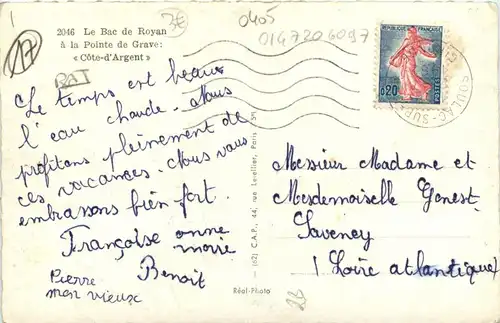 2046 Le Bac de Royan
à la Pointe de Grave:
« Côte-d'Argent »
17
3€
0405
0147206097
BAT
REPUBLIQUE FRANÇAISE
0,20
POSTES
SOULAC-SUR-
Le temps est beau
l'eau chaude. Nous
profitons pleinement de
ces vacances. Nous vous
embrassons bien fort.
Françoise anne
marie
Benoit
Pierre
mon vieux
(62) C.A.P., 44, rue Letellier, Paris
Réal-Photo
Messieur Madame et
Mesdemoiselle Genest
Saveney
(Loire atlantique)